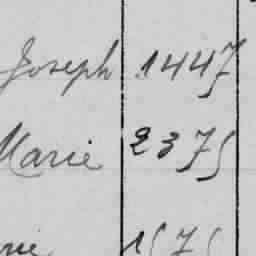 Joseph 1447
Marie 2375
1575